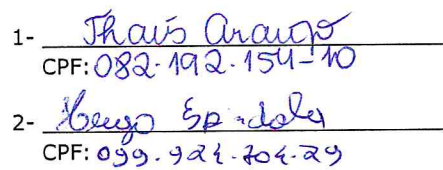 1- Thais Araujo
CPF: 082.192.154-10
2- Hugo Espindola
CPF: 099.924.704-29